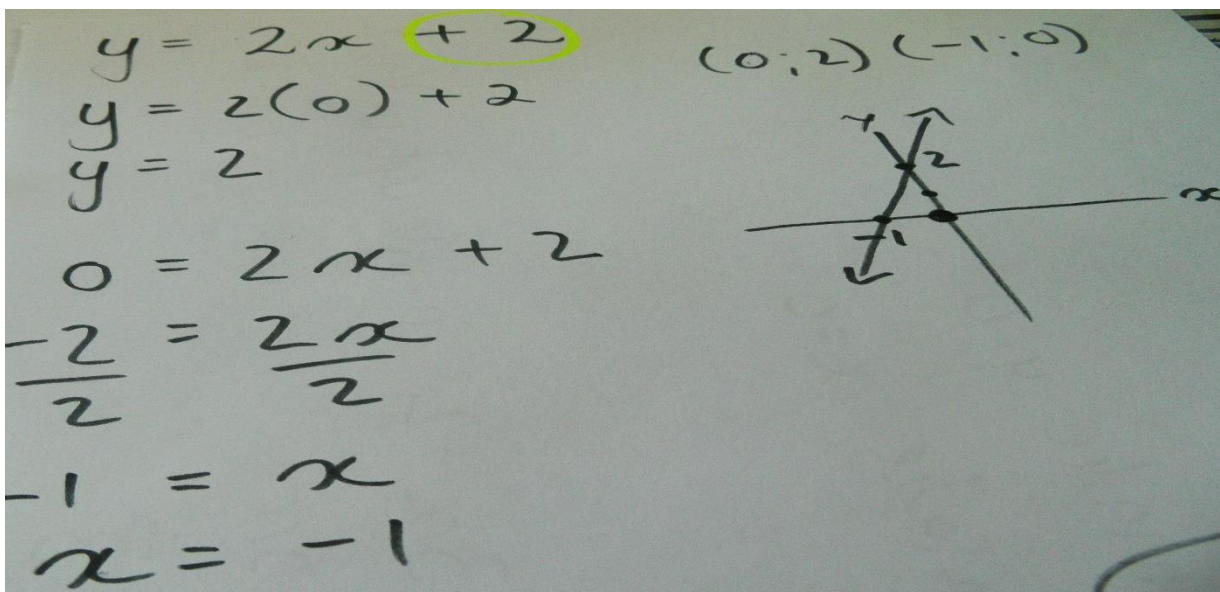 y = 2x + 2
y = 2(0) + 2
y = 2
0 = 2x + 2
-2/2 = 2x/2
-1 = x
x = -1
(0;2) (-1;0)
y
2
x
-1